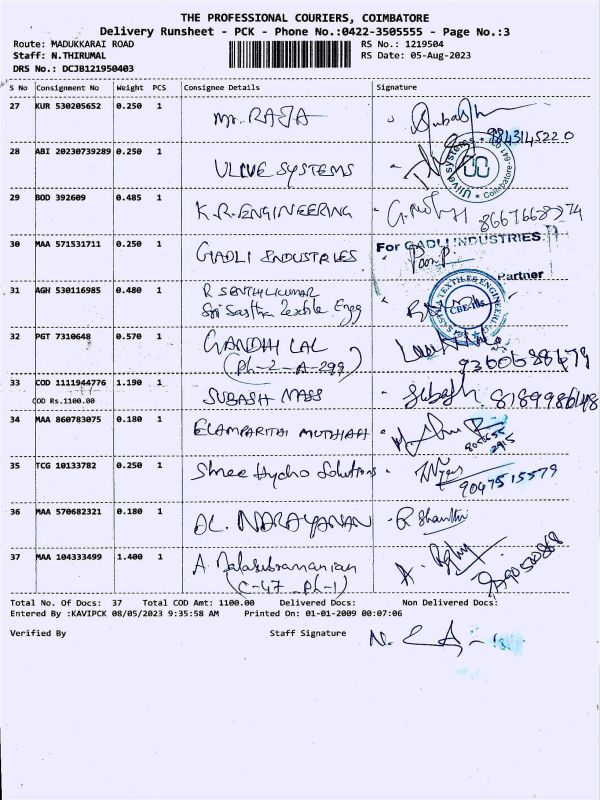 THE PROFESSIONAL COURIERS, COIMBATORE
Delivery Runsheet - PCK - Phone No.:0422-3505555 - Page No.:3
Route: MADUKKARAI ROAD RS No.: 1219504
Staff: N.THIRUMAL RS Date: 05-Aug-2023
DRS No.: DCJB121950403
S No Consignment No Weight PCS Consignee Details Signature
27 KUR 530205652 0.250 1 Mr. RAJA Subash
9843145220
28 ABI 20230739289 0.250 1 ULIVE SYSTEMS
29 BOD 392609 0.485 1 K.R. ENGINEERING 8667668774
30 MAA 571531711 0.250 1 GADLI INDUSTRIES For GADLI INDUSTRIES.
Partner
31 AGH 530116985 0.480 1 R SENTHILKUMAR
Sri Sastha Textile Engg CBE-
32 PGT 7310648 0.570 1 GANDHI LAL
(Ph-2-A-299) 9360688679
33 COD 1111944776 1.190 1 SUBASH MASS Subash 8189986148
COD Rs.1100.00
34 MAA 860783075 0.180 1 ELAMPARITHI MUTHIAH
35 TCG 10133782 0.250 1 Shree Hydro Solutions
9047515579
36 MAA 570682321 0.180 1 AL. NARAYANAN R Shanthi
37 MAA 104333499 1.400 1 A. Balasubramanian
(C-47 Ph-1)
Total No. Of Docs: 37 Total COD Amt: 1100.00 Delivered Docs: Non Delivered Docs:
Entered By :KAVIPCK 08/05/2023 9:35:58 AM Printed On: 01-01-2009 00:07:06
Verified By Staff Signature